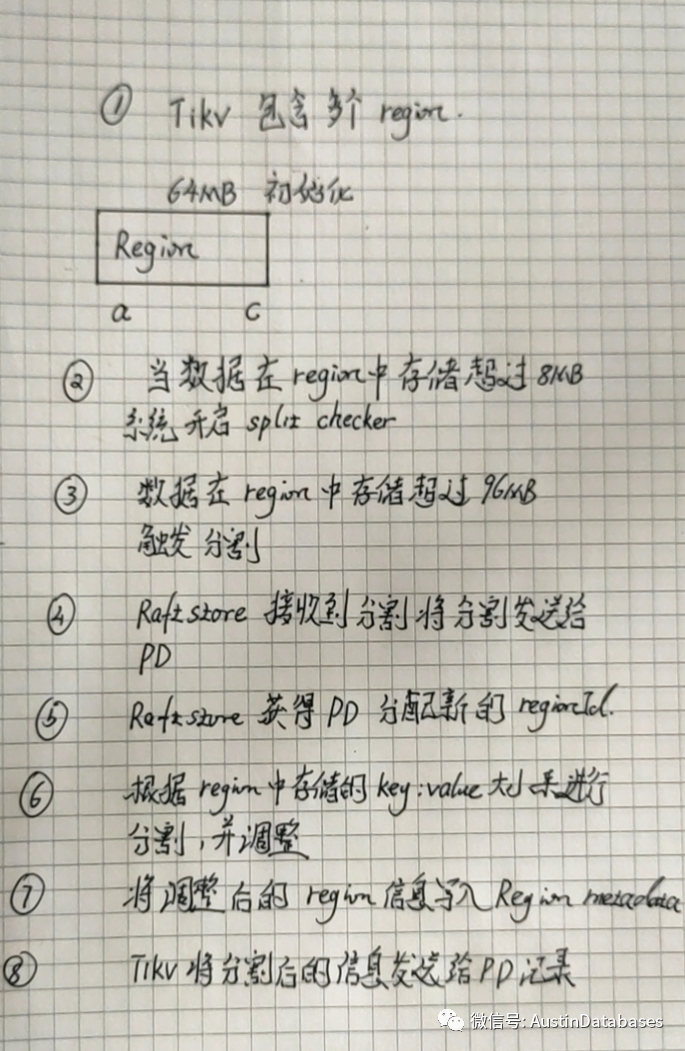 ① Tikv 包含多个 region.
64MB 初始化
Region
a c
② 当数据在region中存储超过8MB
系统开启 split checker
③ 数据在region中存储超过96MB
触发分割
④ Raftstore 接收到分割将分割发送给
PD
⑤ Raftstore 获得PD 分配新的 regionId.
⑥ 根据region中存储的key:value大小来进行
分割,并调整
⑦ 将调整后的 region 信息写入Region metadata
⑧ Tikv 将分割后的信息发送给PD记录
微信号: AustinDatabases